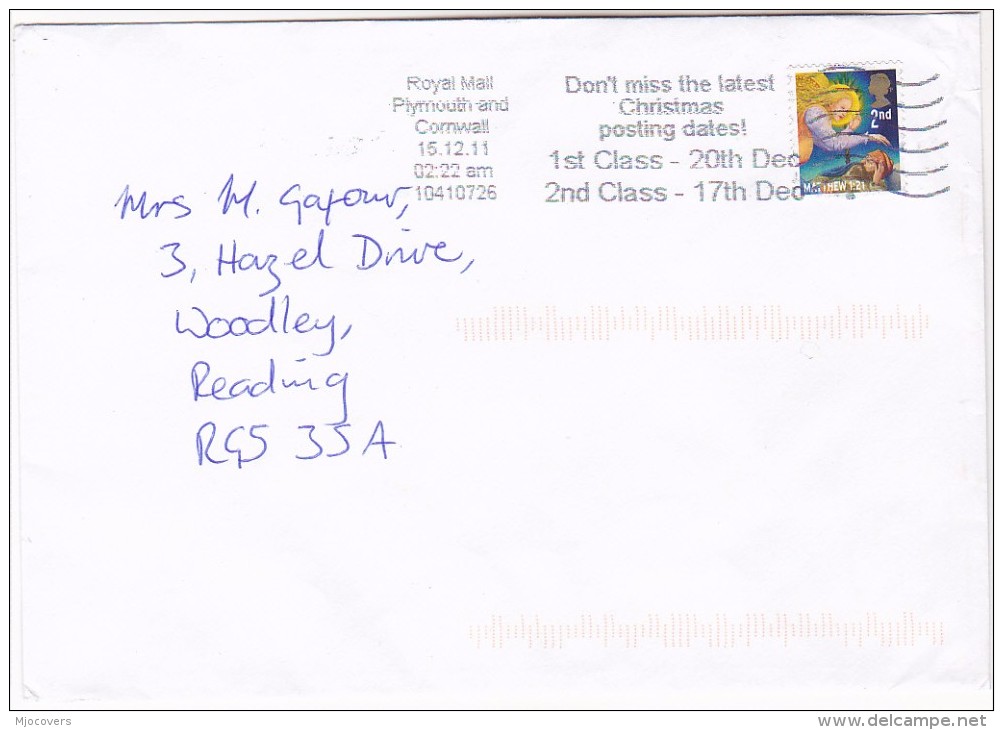 Royal Mail
Plymouth and
Cornwall
15.12.11
02:22 am
10410726
Don't miss the latest
Christmas
posting dates!
1st Class - 20th Dec
2nd Class - 17th Dec
2nd
MATTHEW 1:21
Mrs M. Gafour,
3, Hazel Drive,
Woodley,
Reading
RG5 3SA
Mjocovers
delcampe.net